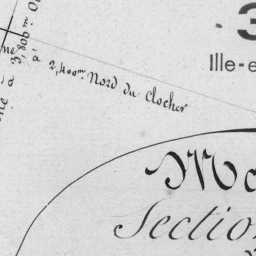 3
Ille-e
2,400m. Nord du Clocher
3,800m. O
à
Mo
Section